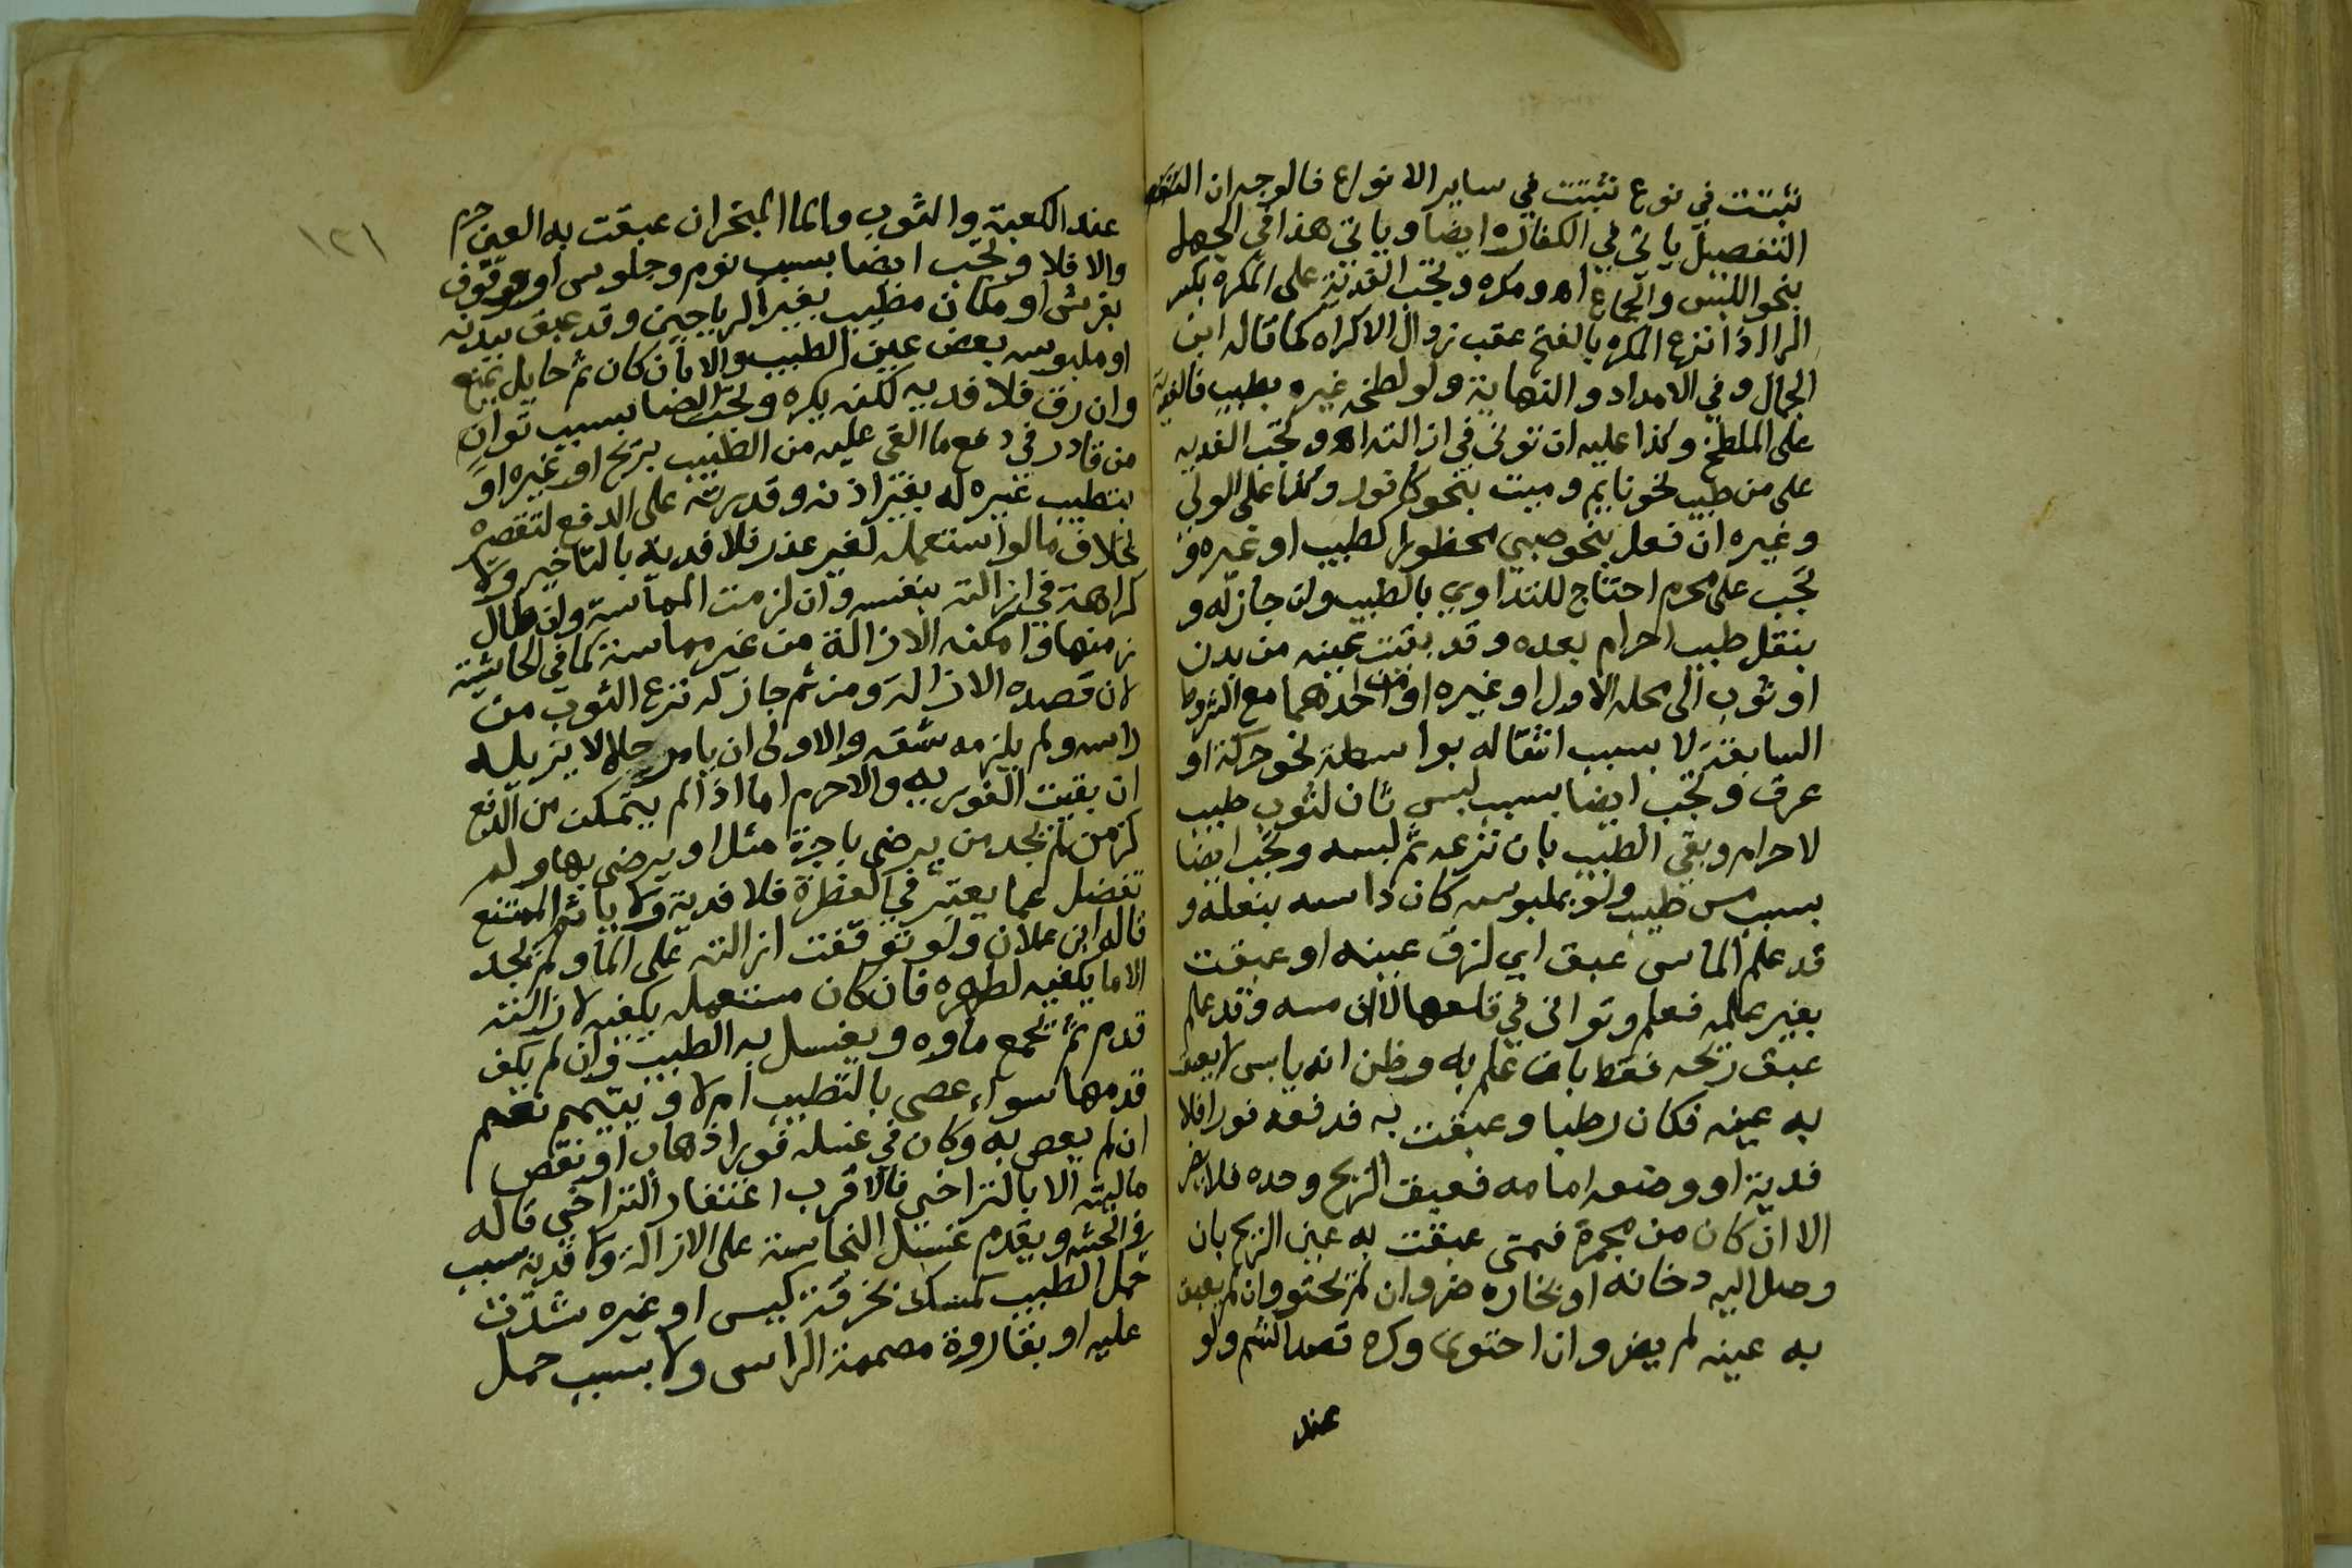 نثبتت في نوع نثبتت في ساير الانواع فالوجه ان
التفصيل ياتي في الكفارة ايضا وياتي هذا في الجهل
بنحو اللبس والجماع اه ومكره وتجب الفدية على المكره بكسر
الرا اذا نزع المكره بالفتح عقب زوال الاكراه كما قاله ابن
الجمال وفي الامداد والنهاية ولو لطخه غيره بطيب فالفدية
على الملطخ وكذا عليه ان توانى في ازالته اه وتجب الفديه
على من طيب نحو نايم وميت بنحو كافور وكذا على الولي
وغيره ان فعل بنحو صبي محظورا كطيب او غيره و
تجب على محرم احتاج للتداوي بالطيب وان جاز له و
بنقل طيب احرام بعده وقد بقيت عينه من بدن
او ثوب الى محله الاول او غيره او من احدهما مع الشروط
السابقة لا بسبب انتقاله بواسطة نحو حركة او
عرق وتجب ايضا بسبب لبس ثان لثوب طيب
لاحرام وبقي الطيب بان نزعه ثم لبسه وتجب ايضا
بسبب مس طيب ولو بملبوسه كان داسه بنعله و
قد علم الماس عبق اي لزق عينه او عبقت
بغير علمه فعلم وتوانى في قلعها لا ان مسه وقد علم
عبق ريحه فقط بان علم به وظن انه يابس لا يعبق
به عينه فكان رطبا وعبقت به فدفعه فورا فلا
فدية او وضعه امامه فعبق الريح وحده فلا يضر
الا ان كان من مجمرة فمتى عبقت به عين الريح بان
وصل اليه دخانه او بخاره ضر وان لم يحتو وان لم يعبق
به عينه لم يضر وان احتوى وكره قصد الشم ولو
عند
١٢١
عند الكعبة والثوب والما المبخر ان عبقت به العين حرم
والا فلا وتجب ايضا بسبب نوم وجلوس او وقوف
بفرش او مكان مطيب بغير الرياحين وقد عبق ببدنه
او ملبوسه بعض عين الطيب والا بان كان ثم حايل يمنع
وان رق فلا فديه لكنه يكره وتجب ايضا بسبب توان
من قادر في دفع ما القي عليه من الطيب بريح او غيره او
بتطيب غيره له بغير اذنه وقدرته على الدفع لتقصيره
بخلاف ما لو استعمله لغير عذر فلا فدية بالتاخير ولا
كراهة في ازالته بنفسه وان لزمت المماسة وان طال
زمنها وامكنه الازالة من غير مماسة كما في الحاشية
لان قصده الازالة ومن ثم جاز له نزع الثوب من
راسه ولم يلزمه شقه والاولى ان يامر حلالا يزيله
ان بقيت الفوريه والا حرم اما اذا لم يتمكن من الدفع
كزمن لم يجد من يرضى باجرة مثل او يرضى بها ولم
تفضل عما يعتبر في الفطرة فلا فدية ولا ياثم الممتنع
قاله ابن علان ولو توقفت ازالته على الما ولم يجد
الا ما يكفيه لطهره فان كان مستعمله يكفيه لازالته
قدم ثم يجمع ماوه ويغسل به الطيب وان لم يكف
قدمها سواء عصى بالتطيب ام لا وتيمم نعم
ان لم يعص به وكان في غسله فورا ذهاب او نقص
ماليته الا بالتراخي فالاقرب اغتفار التراخي قاله
في الحشه ويقدم غسل النجاسة على الازالة ولا فدية بسبب
حمل الطيب كمسك بخرقة كيس او غيره شدت
عليه او بقارورة مصممة الراس ولا بسبب حمل